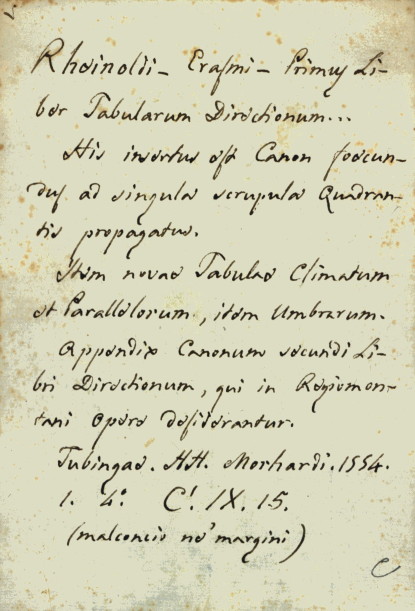 Rheinoldi - Erasmi - Primus Li-
ber Tabularum Directionum...
His insertus est Canon foecun-
dus ad singula scrupula Quadran-
tis propagatus.
Item novae Tabulae Climatum
et Parallelorum, item Umbrarum.
Appendix Canonum secundi Li-
bri Directionum, qui in Regiomon-
tani Opere desiderantur.
Tubingae. HH. Morhardi. 1554.
1. 4.° C!. IX. 15.
(malconcio ne' margini)